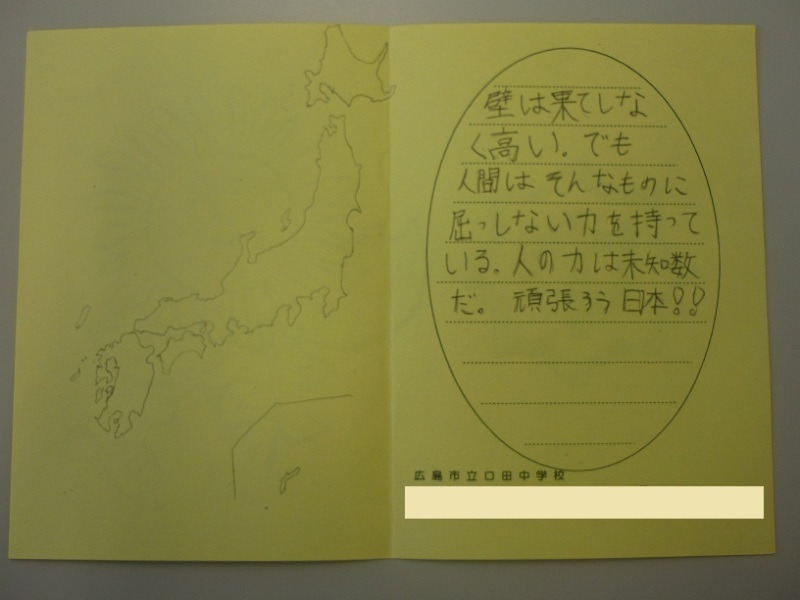 壁は果てしな
く高い。でも
人間はそんなものに
屈っしない力を持って
いる。人の力は未知数
だ。 頑張ろう日本!!
広島市立口田中学校